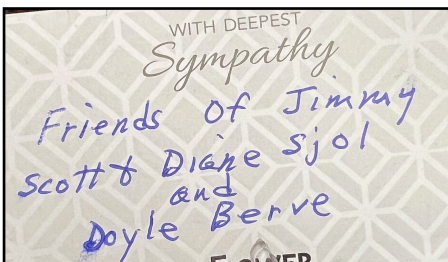 WITH DEEPEST
Sympathy
Friends of Jimmy
Scott & Diane Sjol
and
Doyle Berve